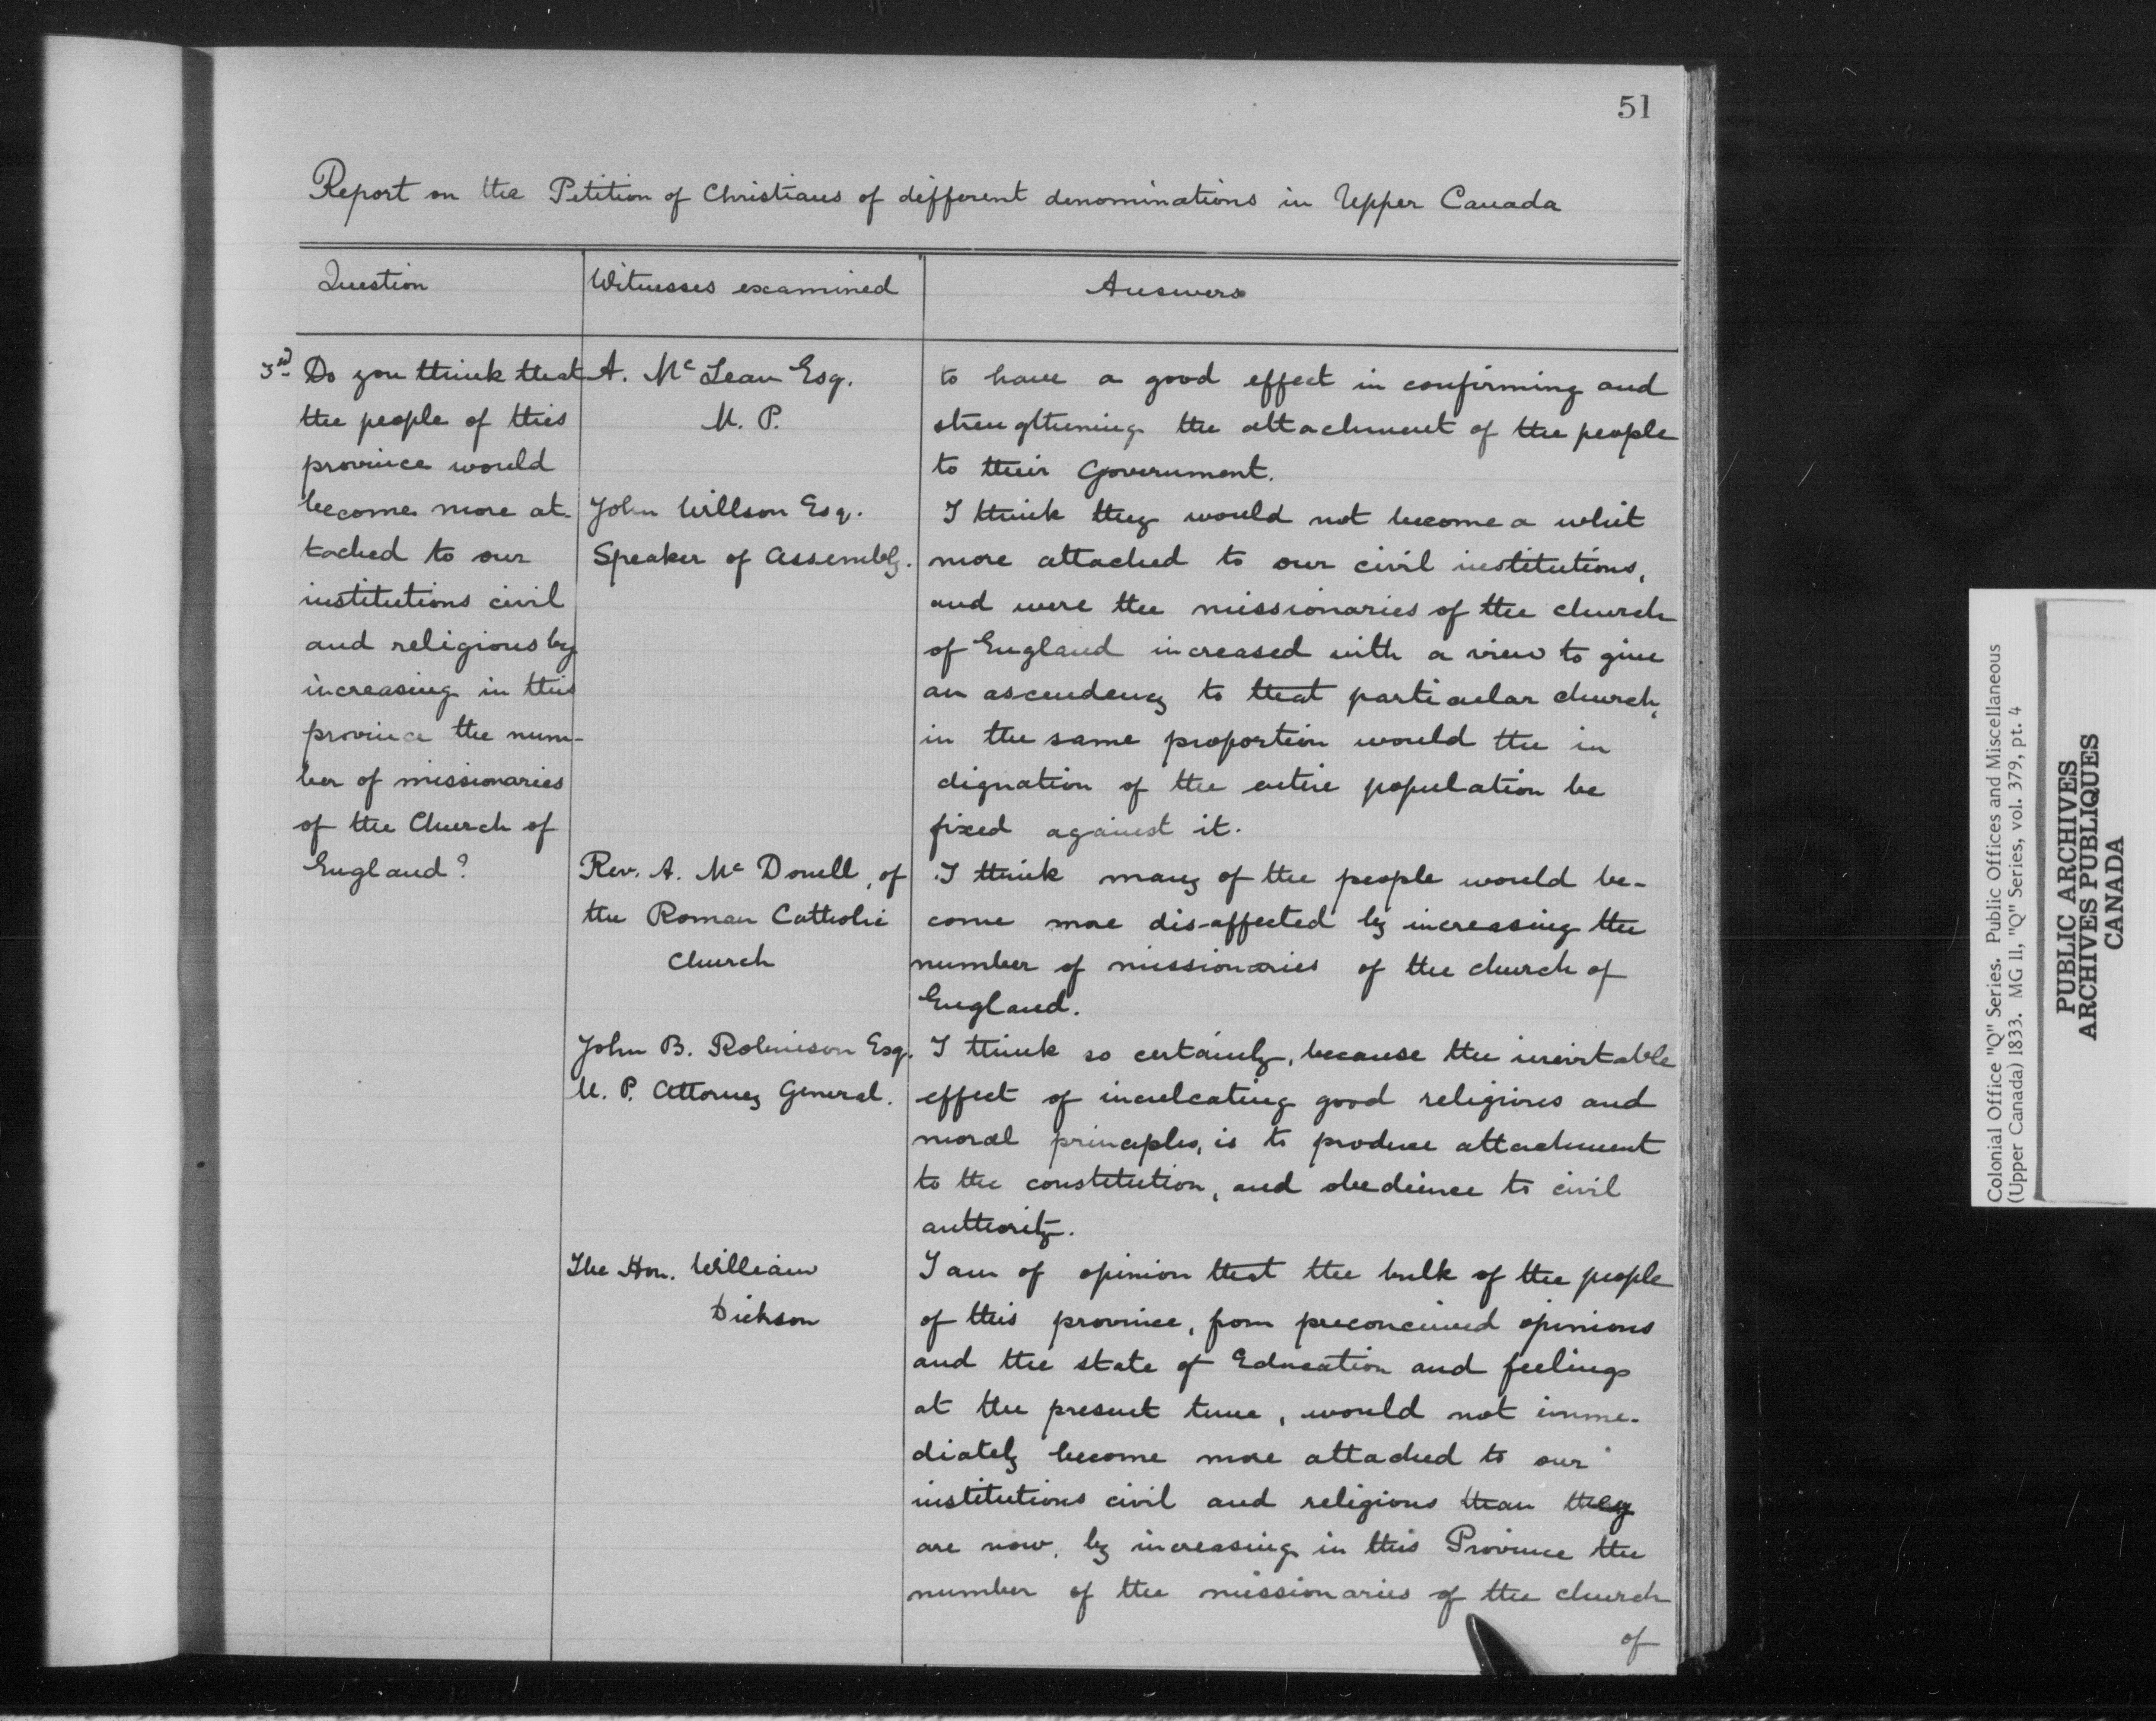 51
Report on the Petition of Christians of different denominations in Upper Canada
Question
Witnesses examined
Answers
3rd Do you think that
the people of this
province would
become more at-
tached to our
institutions civil
and religious by
increasing in this
province the num-
ber of missionaries
of the Church of
England?
A. Mc Lean Esq.
M. P.
to have a good effect in confirming and
strengthening the attachment of the people
to their Government.
John Willson Esq.
Speaker of Assembly.
I think they would not become a whit
more attached to our civil institutions,
and were the missionaries of the church
of England increased with a view to give
an ascendency to that particular church,
in the same proportion would the in
dignation of the entire population be
fixed against it.
Rev. A. Mc Donell, of
the Roman Catholic
Church
I think many of the people would be-
come more dis-affected by increasing the
number of missionaries of the church of
England.
John B. Robinson Esq.
M. P. Attorney General.
I think so certainly, because the inevitable
effect of inculcating good religious and
moral principles, is to produce attachment
to the constitution, and obedience to civil
authority.
The Hon. William
Dickson
I am of opinion that the bulk of the people
of this province, from preconceived opinions
and the state of Education and feelings
at the present time, would not imme-
diately become more attached to our
institutions civil and religious than they
are now, by increasing in this Province the
number of the missionaries of the church
of
Colonial Office "Q" Series. Public Offices and Miscellaneous
(Upper Canada) 1833. MG 11, "Q" Series, vol. 379, pt. 4
PUBLIC ARCHIVES
ARCHIVES PUBLIQUES
CANADA